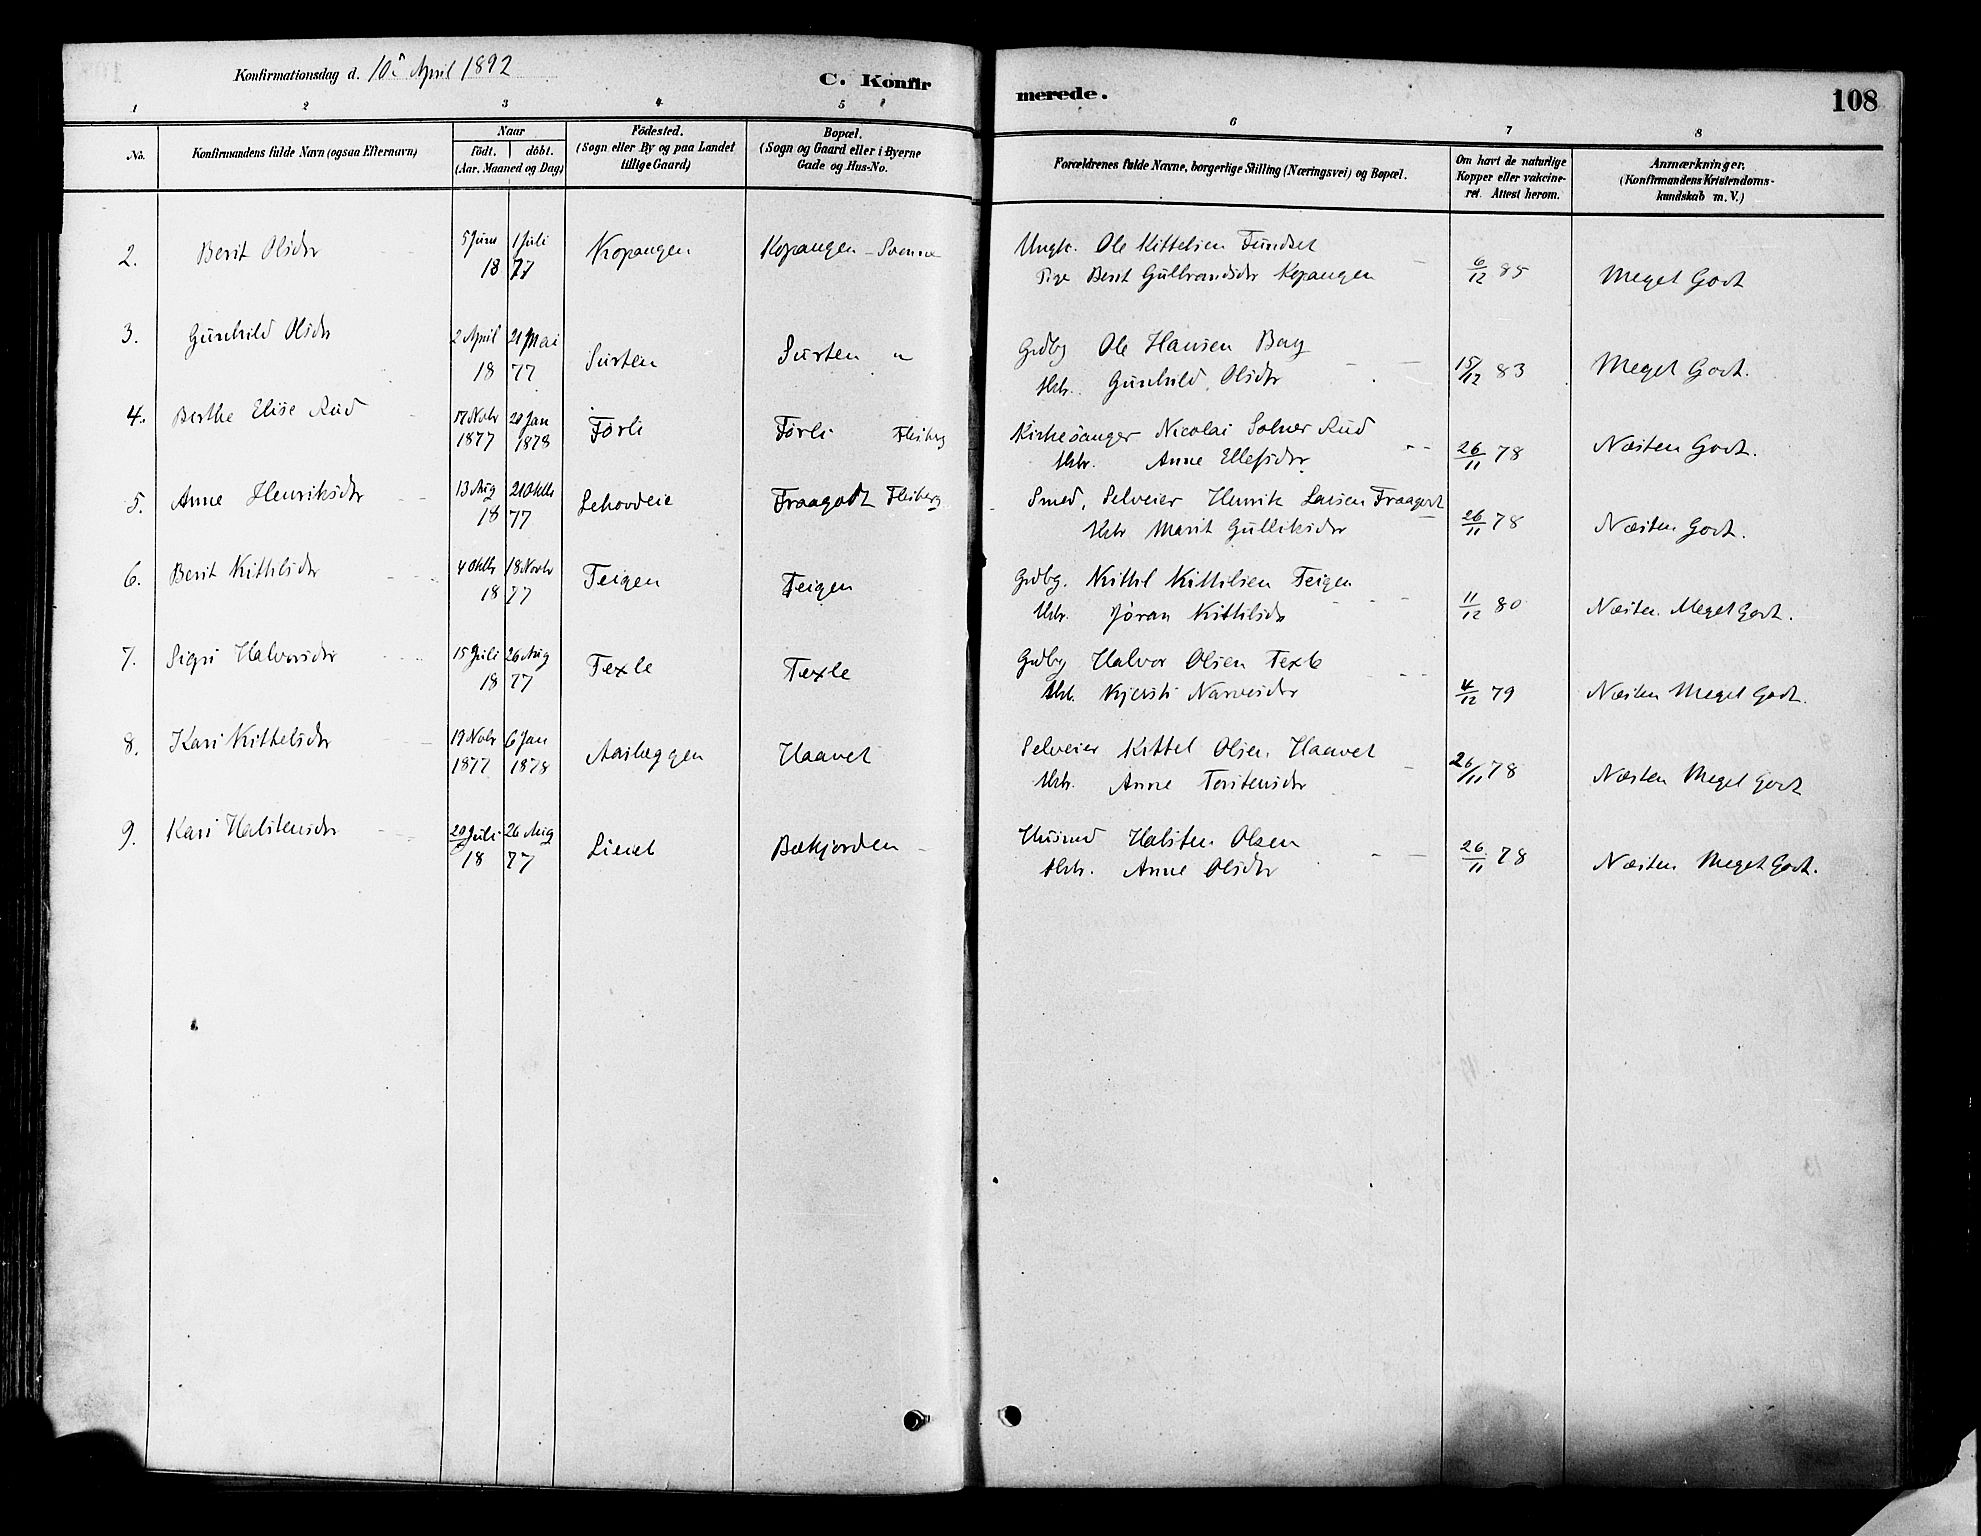 Konfirmationsdag d. 10de April 1892
C. Konfirmerede.
108
1 2 3 4 5 6 7 8
No.
Konfirmandens fulde Navn (ogsaa Efternavn)
Naar
födt. döbt.
(Aar, Maaned og Dag)
Födested.
(Sogn eller By og paa Landet
tillige Gaard)
Bopæl.
(Sogn og Gaard eller i Byerne
Gade og Hus-No.
Forældrenes fulde Navne, borgerlige Stilling (Næringsvei) og Bopæl.
Om havt de naturlige
Kopper eller vakcine-
ret. Attest herom.
Anmærkninger.
(Konfirmandens Kristendoms-
kundskab m. V.)
2. Berit Olsdtr 5 Juni 1 Juli Kopangen Kopangen Ungk. Ole Kittelsen Fundset
18 77 Pige Berit Gulbrandsdtr Kopangen 6/12 85 Meget Godt
3. Gunhild Olsdtr 2 April 21 Mai Surten Surten Grdbg Ole Hansen Berg
18 77 Hstr. Gunhild Olsdtr 15/12 83 Meget Godt.
4. Berthe Elise Rud 17 Novbr 20 Jan Førli Førli Flesberg Kirkesanger Nicolai Solner Rud
1877 1878 Hstr. Anne Ellefsdtr 26/11 78 Næsten Godt.
5. Anne Henriksdtr 13 Aug 21 Oktb Lehovdeie Fraagodt Flesberg Smed, Selveier Henrik Larsen Fraagodt
18 77 Hstr Marit Gulliksdtr 26/11 78 Næsten Godt.
6. Berit Kittilsdtr 4 Oktb 18 Novbr Feigen Feigen Grdbg. Kittil Kittilsen Feigen
18 77 Hstr. Jøran Kittilsdtr 11/12 80 Næsten Meget Godt.
7. Sigri Halvorsdtr 15 Juli 26 Aug Texle Texle Grdbg Halvor Olsen Texle
18 77 Hstr. Kjersti Narvesdtr 4/12 79 Næsten Meget Godt.
8. Kari Kittelsdtr 19 Novbr 6 Jan Aasleggen Haavet Selveier Kittel Olsen Haavet
1877 1878 Hstr. Anne Torstensdtr 26/11 78 Næsten Meget Godt
9. Kari Halstensdtr 20 Juli 26 Aug Lieiet Bækjorden Husmd Halsten Olsen
18 77 Hstr. Anne Olsdtr 26/11 78 Næsten Meget Godt.